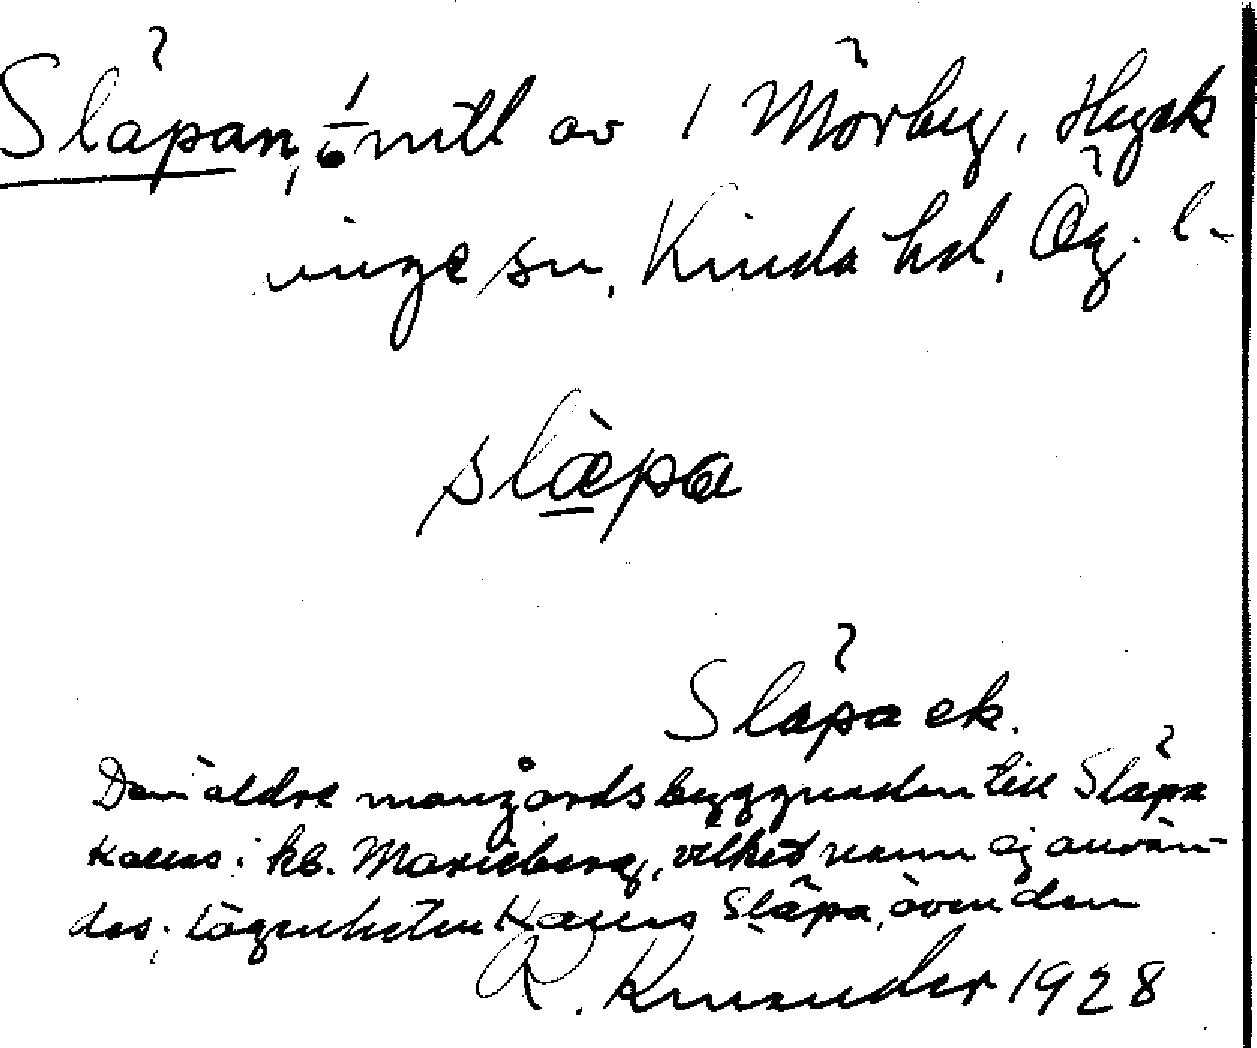 Släpan, 1/6 mtl av 1 Mörby, Hyck
inge sn, Kinda hd, Ög. l.
slæ̀pa
Släpa ek.
Den äldre mangårdsbyggnaden till Släpa
kallas i kb. Marieberg, vilket namn ej använ-
des; lägenheten kallas Släpa, även den
R. 1928